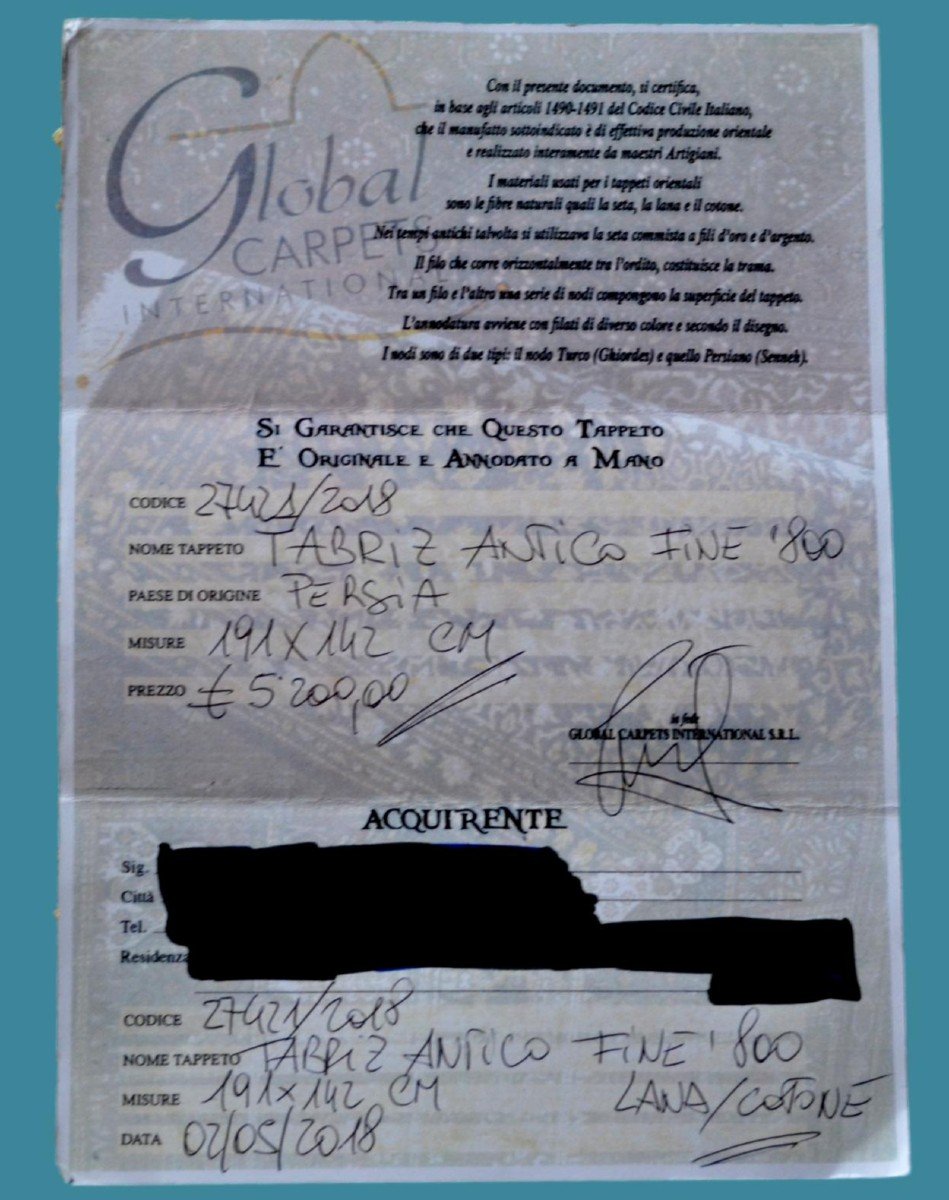 Global
CARPETS
INTERNATIONAL
Con il presente documento, si certifica,
in base agli articoli 1490-1491 del Codice Civile Italiano,
che il manufatto sottoindicato è di effettiva produzione orientale
e realizzato interamente da maestri Artigiani.
I materiali usati per i tappeti orientali
sono le fibre naturali quali la seta, la lana e il cotone.
Nei tempi antichi talvolta si utilizzava la seta commista a fili d'oro e d'argento.
Il filo che corre orizzontalmente tra l'ordito, costituisce la trama.
Tra un filo e l'altro una serie di nodi compongono la superficie del tappeto.
L'annodatura avviene con filati di diverso colore e secondo il disegno.
I nodi sono di due tipi: il nodo Turco (Ghiordes) e quello Persiano (Senneh).
SI GARANTISCE CHE QUESTO TAPPETO
E' ORIGINALE E ANNODATO A MANO
CODICE 27421/2018
NOME TAPPETO TABRIZ ANTICO FINE '800
PAESE DI ORIGINE PERSIA
MISURE 191X142 CM
PREZZO € 5200,00
in fede
GLOBAL CARPETS INTERNATIONAL S.R.L.
ACQUIRENTE
Sig.
Città
Tel.
Residenza
CODICE 27421/2018
NOME TAPPETO TABRIZ ANTICO FINE '800
MISURE 191X142 CM LANA/COTONE
DATA 02/05/2018